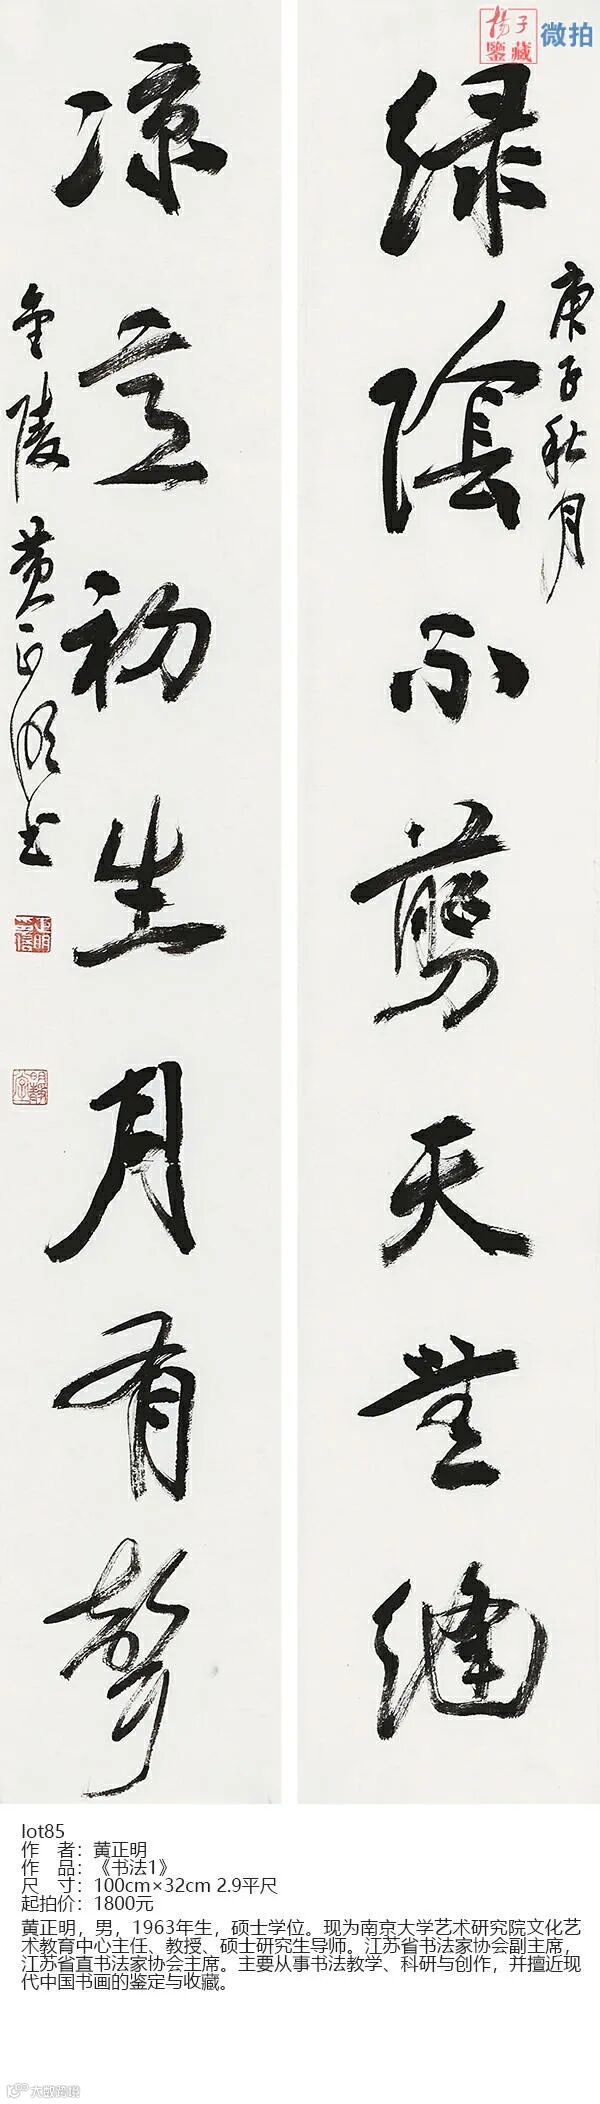 揚子
鑒藏
微拍
绿陰不 天無縫
庚子秋月
凉意初生月有聲
金陵黄正明书
lot85
作　者：黄正明
作　品：《书法1》
尺　寸：100cm×32cm 2.9平尺
起拍价：1800元
黄正明，男，1963年生，硕士学位。现为南京大学艺术研究院文化艺
术教育中心主任、教授、硕士研究生导师。江苏省书法家协会副主席，
江苏省直书法家协会主席。主要从事书法教学、科研与创作，并擅近现
代中国书画的鉴定与收藏。
大数跨境